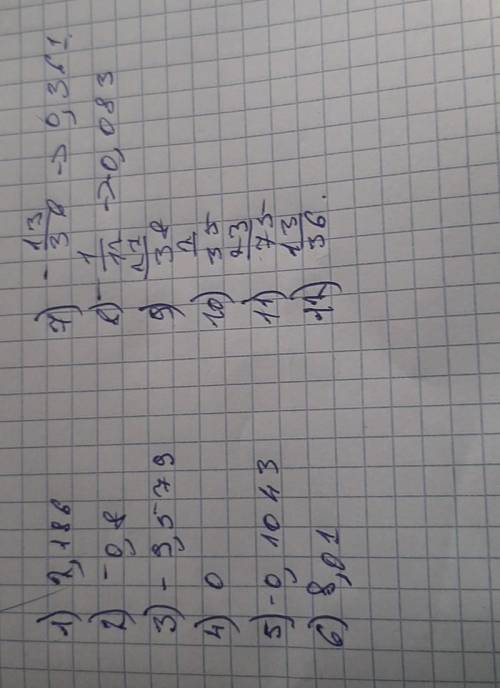 1) 2,186
2) -0,8
3) -9,579
4) 0
5) -0,1043
6) 8,01
7) -13/38 -> 0,361.
8) -1/12 -> 0,083
9)
10) 2/35
11) 23/75
12) 13/36.